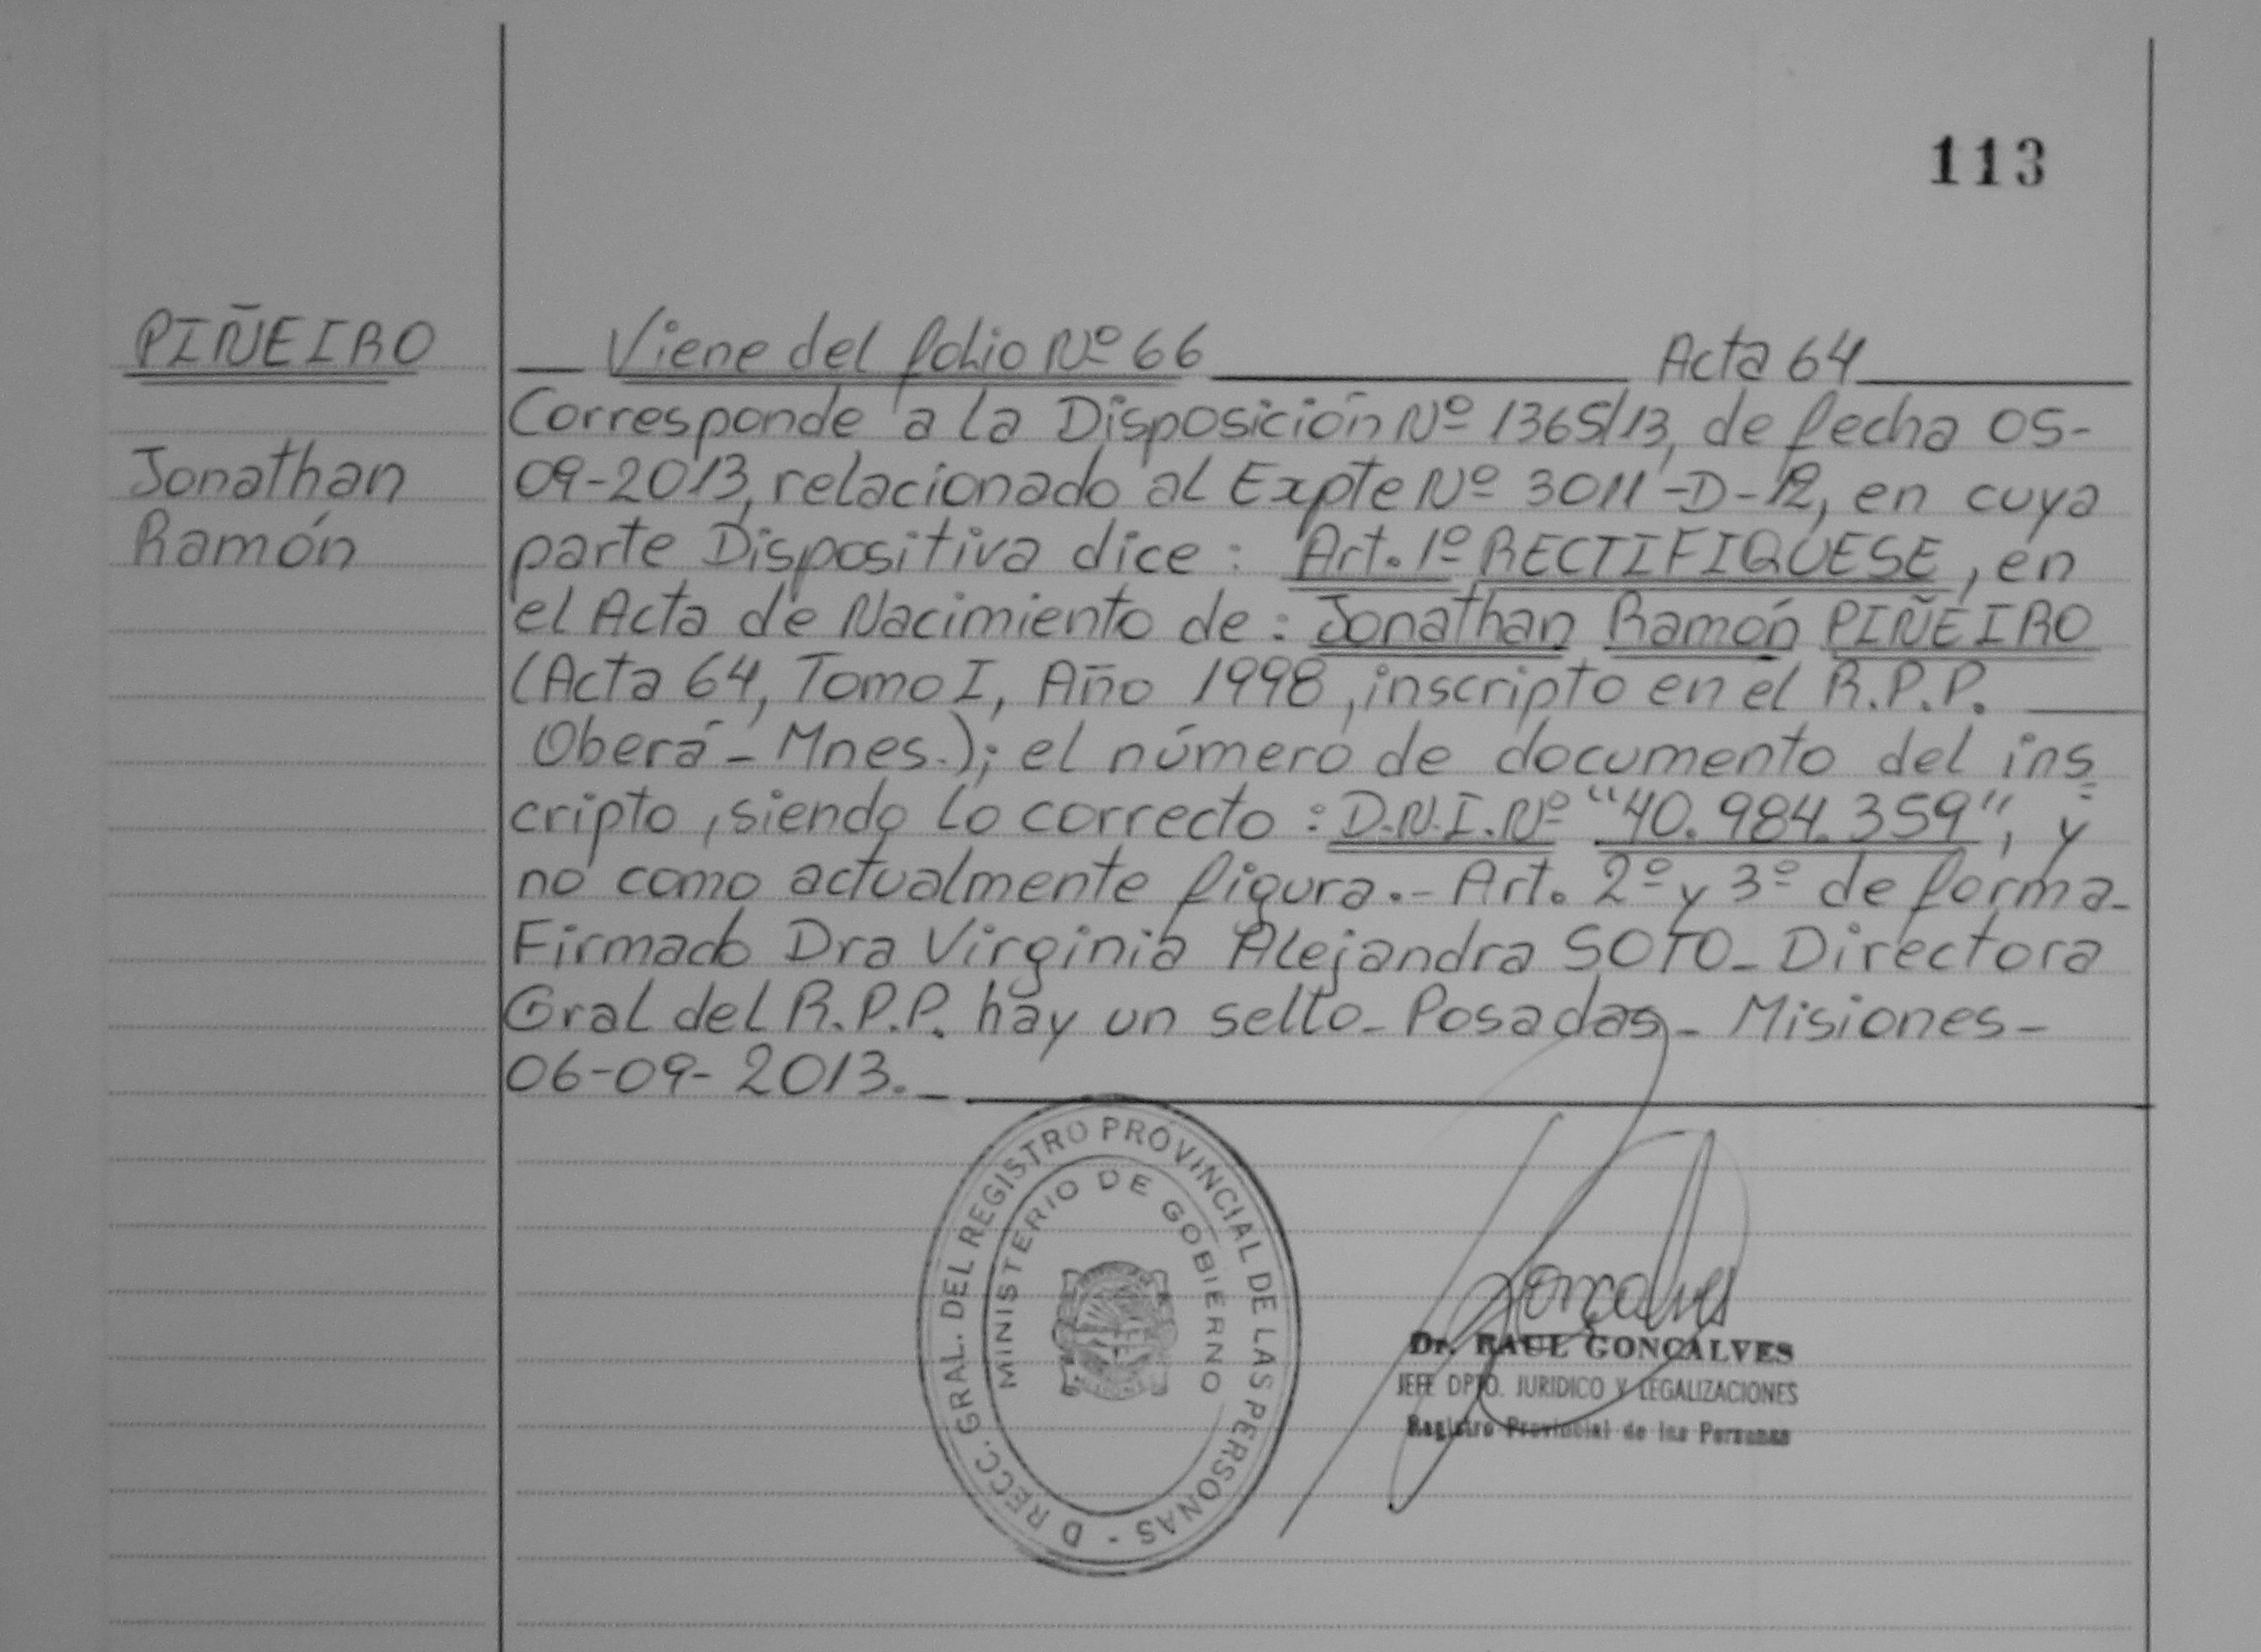 113
PIÑEIRO
Jonathan
Ramón
Viene del folio Nº 66 Acta 64
Corresponde a la Disposición Nº 1365/13, de fecha 05-
09-2013, relacionado al Expte Nº 3011-D-12, en cuya
parte Dispositiva dice: Art. 1º RECTIFIQUESE, en
el Acta de Nacimiento de: Jonathan Ramón PIÑEIRO
(Acta 64, Tomo I, Año 1998, inscripto en el R.P.P.
Oberá - Mnes.); el número de documento del ins
cripto, siendo lo correcto: D.N.I. Nº "40.984.359", y
no como actualmente figura.- Art. 2º y 3º de forma-
Firmado Dra Virginia Alejandra SOTO- Directora
Gral del R.P.P. hay un sello- Posadas- Misiones-
06-09-2013.-
DRECC. GRAL. DEL REGISTRO PROVINCIAL DE LAS PERSONAS -
MINISTERIO DE GOBIERNO
Goncalves
Dr. RAUL GONCALVES
JEFE DPTO. JURIDICO Y LEGALIZACIONES
Registro Provincial de las Personas